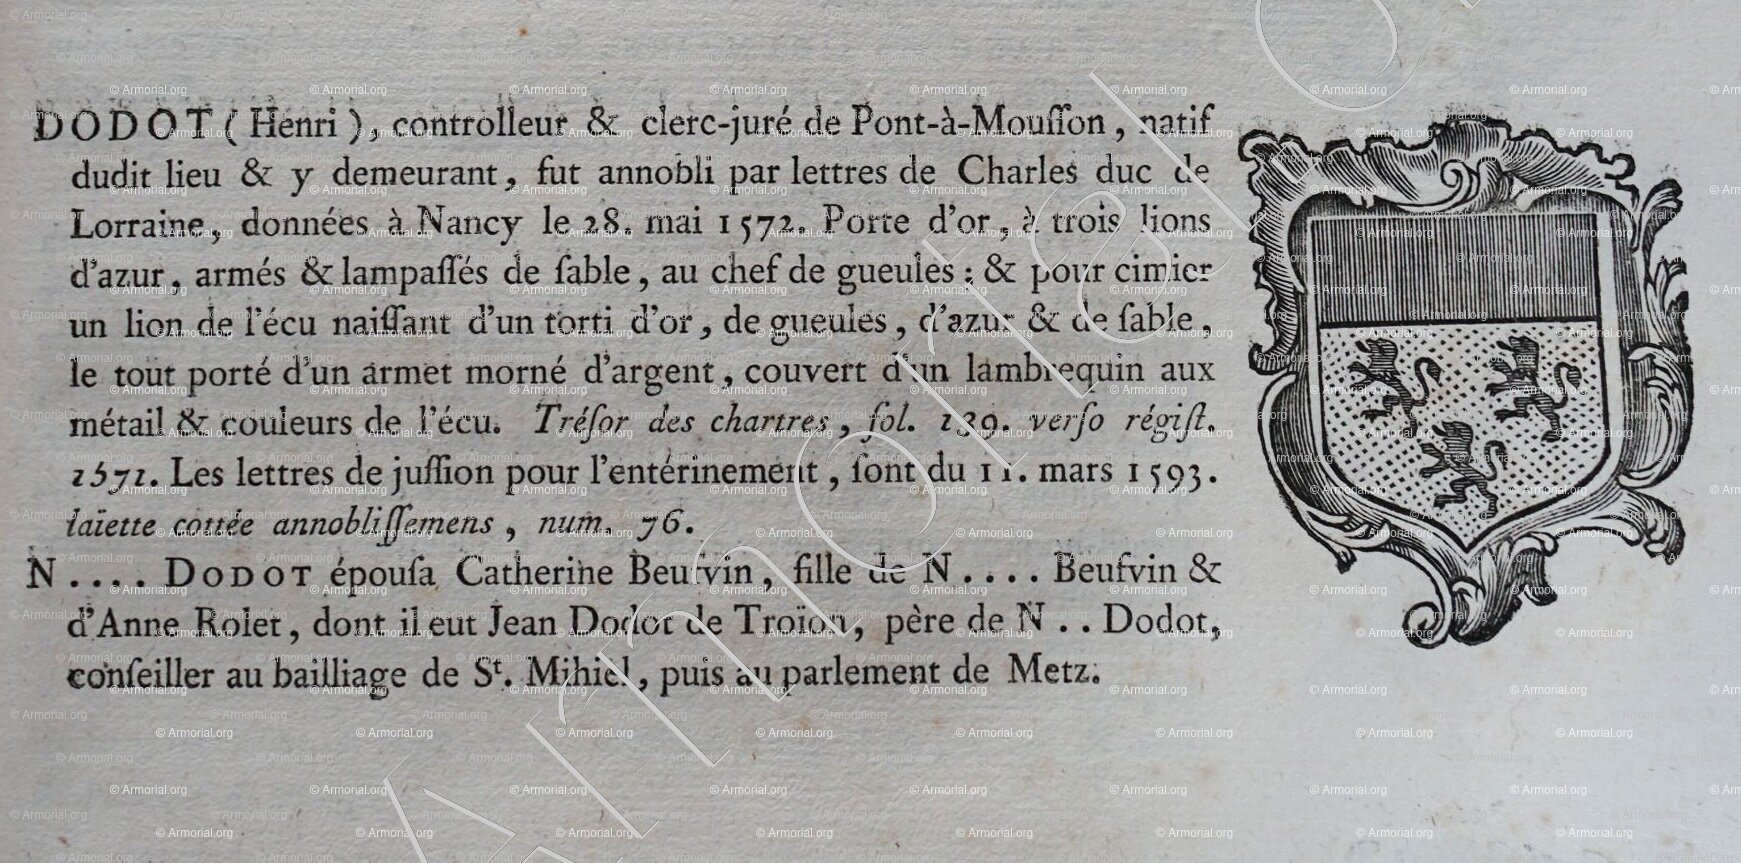 DODOT ( Henri ), controlleur & clerc-juré de Pont-à-Mouſſon, natif
dudit lieu & y demeurant, fut annobli par lettres de Charles duc de
Lorraine, données à Nancy le 28. mai 1572. Porte d'or, à trois lions
d'azur, armés & lampaſſés de ſable, au chef de gueules ; & pour cimier
un lion de l'écu naiſſant d'un torti d'or, de gueules, d'azur & de ſable,
le tout porté d'un armet morné d'argent, couvert d'un lambrequin aux
métail & couleurs de l'écu. Tréſor des chartres, fol. 139. verſo régiſt.
1571. Les lettres de juſſion pour l'entérinement, ſont du 11. mars 1593.
laïette cottée annobliſſemens, num. 76.
N.... DODOT épouſa Catherine Beufvin, fille de N.... Beufvin &
d'Anne Rolet, dont il eut Jean Dodot de Troïon, père de N.. Dodot,
conſeiller au bailliage de St. Mihiel, puis au parlement de Metz.
© Armorial.org